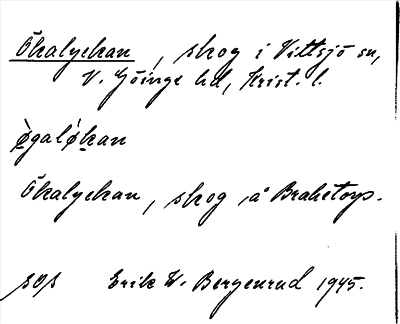 Ökalyckan, skog i Vittsjö sn,
V. Göinge hd, Krist. l.
ø̀galǿkan
Ökalyckan, skog, å Braketorp.
sos Erik W. Bergenrud 1945.